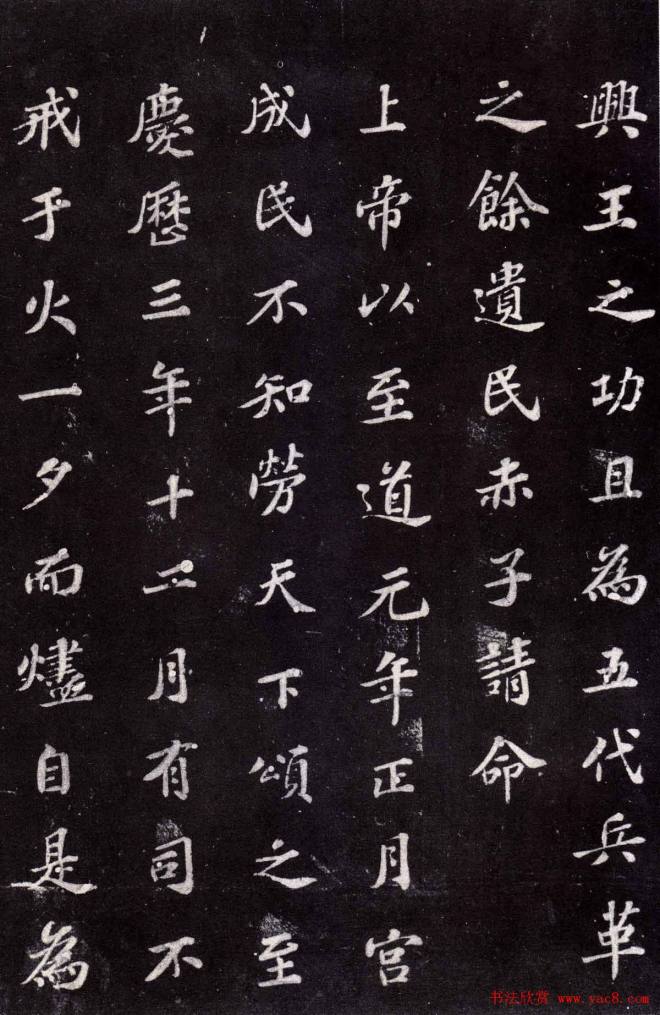 興王之功且為五代兵革
之餘遺民赤子請命
上帝以至道元年正月宮
成民不知勞天下頌之至
慶曆三年十二月有司不
戒于火一夕而燼自是為
书法欣赏 www.yac8.com